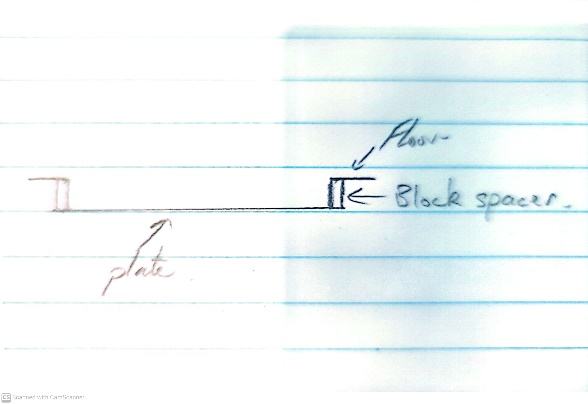 Floor
Block spacer.
plate
CS Scanned with CamScanner